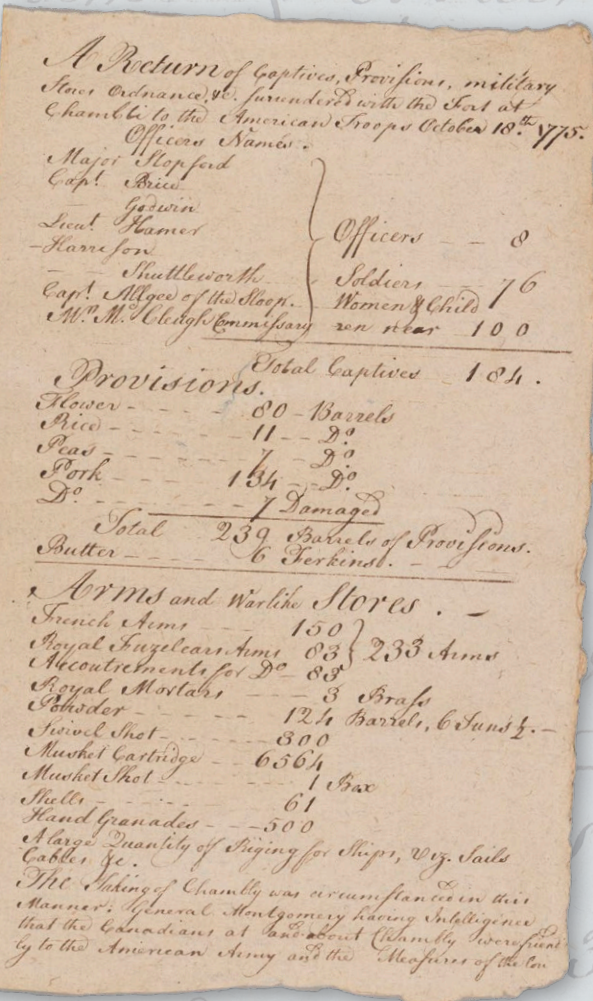 A Return of Captives, Provisions, military
Stores Ordnance, &c. surrendered with the Fort at
Chambli to the American Troops October 18.th 1775.
Officers Names.
Major Stopford
Capt. Price
— Godwin
Lieut. Hamer
— Harrison
— Shuttleworth
Capt. Allgee of the Sloop.
Mr. Mc. Cleagh Commissary
Officers — — 8
Soldiers — — 76
Women & Child
ren near 100
Total Captives — 184.
Provisions.
Flower — — — 80 — Barrels
Rice — — — 11 — — Do.
Peas — — — 7 — — Do.
Pork — — — 134 — — Do.
Do. — — — 7 Damaged
Total 239 Barrels of Provisions.
Butter — — — 6 Ferkins. —
Arms and Warlike Stores. —
French Arms — — 150
Royal Fuzelears Arms 83 } 233 Arms
Accoutrements for Do — 83
Royal Mortars — — 3 Brass
Powder — — — 124 Barrels, 6 Tuns ½. —
Swivel Shot — — — 300
Musket Cartridge — — 6564
Musket Shot — — — 1 Box
Shells — — — 61
Hand Granades — — 500
A large Quantity of Riging for Ships, Viz. Sails
Cables &c.
The Taking of Chambly was circumstanced in this
Manner: General Montgomery having Intelligence
that the Canadians at and about Chambly were friend
ly to the American Army and the Measures of the Con